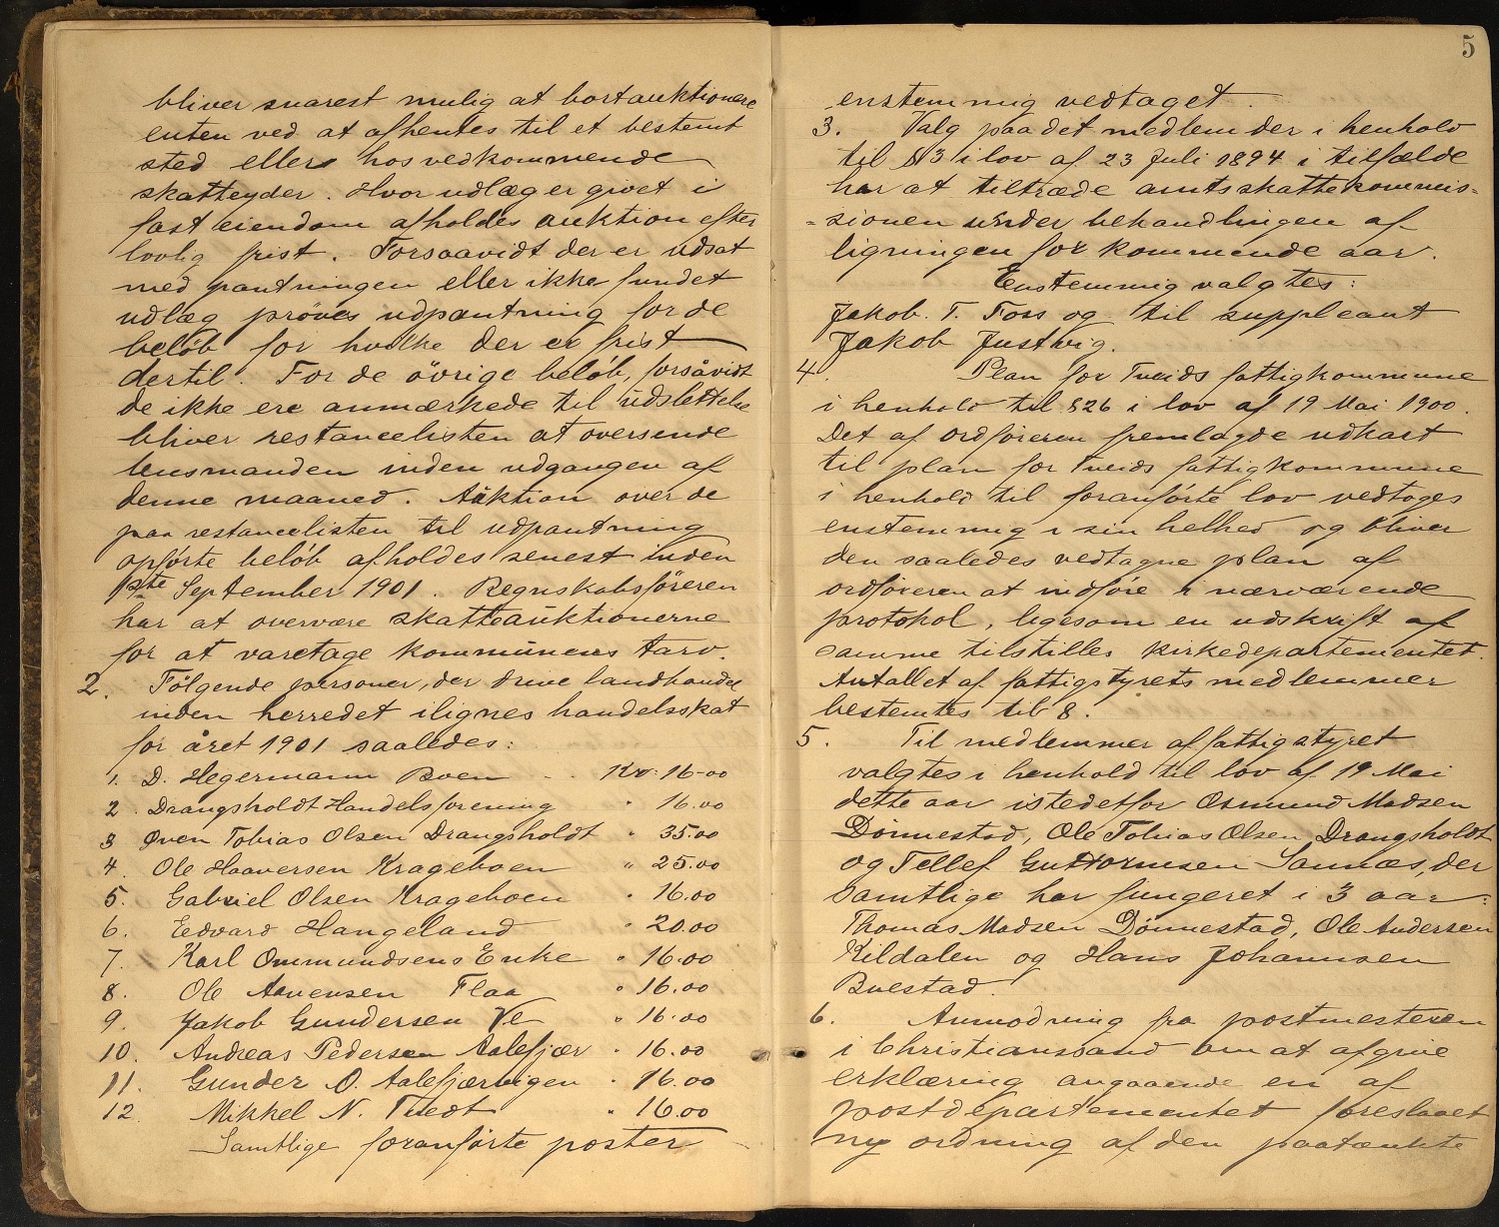 bliver snarest mulig at bortauktionere
enten ved at afhentes til et bestemt
sted eller hos vedkommende
skatteyder. Hvor udlæg er givet i
fast eiendom afholdes auktion efter
lovlig frist. Forsaavidt der er udsat
med pantningen eller ikke fundet
udlæg prøves udpantning for de
beløb for hvilke der er frist
dertil. For de øvrige beløb, forsåvidt
de ikke ere anmærkede til udslettelse
bliver restancelisten at oversende
lensmanden inden udgangen af
denne maaned. Auktion over de
paa restancelisten til udpantning
opførte beløb afholdes senest inden
1ste September 1901. Regnskabsføreren
har at overvære skatteauktionerne
for at varetage kommunens tarv.
2. Følgende personer, der drive landhandel
inden herredet ilignes handelsskat
for året 1901 saaledes:
1. D. Hegermann Boen . . Kr. 16-00
2. Drangsholdt Handelsforening " 16.00
3 Oven Tobias Olsen Drangsholdt " 35.00
4. Ole Haaversen Krageboen " 25.00
5. Gabriel Olsen Krageboen " 16.00
6. Edvard Hangeland " 20.00
7. Karl Ommundsens Enke " 16.00
8. Ole Aavensen Flaa " 16.00
9. Jakob Gundersen Ve " 16.00
10. Andreas Pedersen Aalefjær " 16.00
11. Gunder O. Aalefjærvigen " 16.00
12. Mikkel N. Tvedt " 16.00
Samtlige foranførte poster
5
enstemmig vedtaget.
3. Valg paa det medlem der i henhold
til § 13 i lov af 23 Juli 1894 i tilfælde
har at tiltræde amtsskattekommis-
-sionen under behandlingen af
ligningen for kommende aar.
Enstemmig valgtes:
Jakob. T. Foss og til suppleant
Jakob Justvig.
4. Plan for Tveids fattigkommune
i henhold til § 26 i lov af 19 Mai 1900.
Det af ordføreren fremlagde udkast
til plan for Tveids fattigkommune
i henhold til foranførte lov vedtoges
enstemmig i sin helhed og bliver
den saaledes vedtagne plan af
ordføreren at indføre i nærværende
protokol, ligesom en udskrift af
samme tilstilles kirkedepartementet.
Antallet af fattigstyrets medlemmer
bestemtes til 8.
5. Til medlemmer af fattigstyret
valgtes i henhold til lov af 19 Mai
dette aar istedetfor Osmund Madsen
Dønnestad, Ole Tobias Olsen Drangsholdt
og Tellef Guttormsen Sannæs, der
samtlige har fungeret i 3 aar:
Thomas Madsen Dønnestad, Ole Andersen
Kildalen og Hans Johannsen
Buestad.
6. Anmodning fra postmesteren
i Christianssand om at afgive
erklæring angaaende en af
postdepartementet foreslaaet
ny ordning af den paatænkte